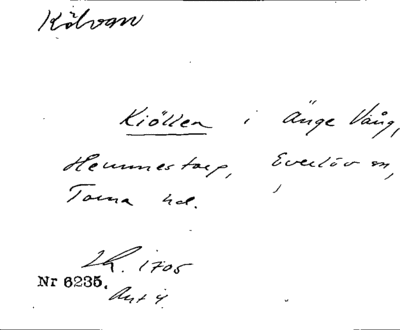 Kölvan
Kiöllen i Änge Vång,
Hemmestorp, Everlöv sn,
Torna hd.
Lh. 1705
Nr 6235.
Akt 4